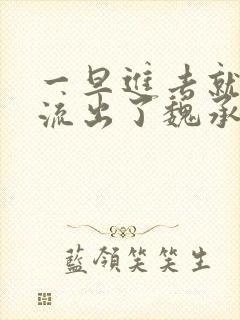 一早進去就
流出了魏承
藍領笑笑生